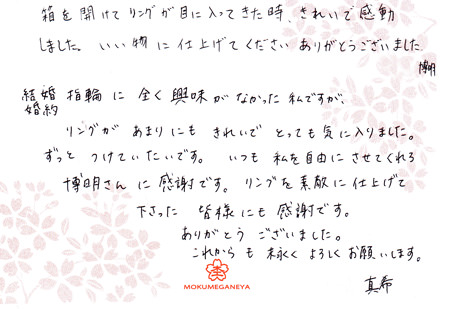 箱を開けてリングが目に入ってきた時、きれいで感動
しました。いい物に仕上げてくださいありがとうございました
博明
結婚
婚約
指輪に全く興味がなかった私ですが、
リングがあまりにもきれいでとっても気に入りました。
ずっとつけていたいです。いつも私を自由にさせてくれる
博明さんに感謝です。リングを素敵に仕上げて
下さった皆様にも感謝です。
ありがとうございました。
これからも永くよろしくお願いします。
真希
MOKUMEGANEYA